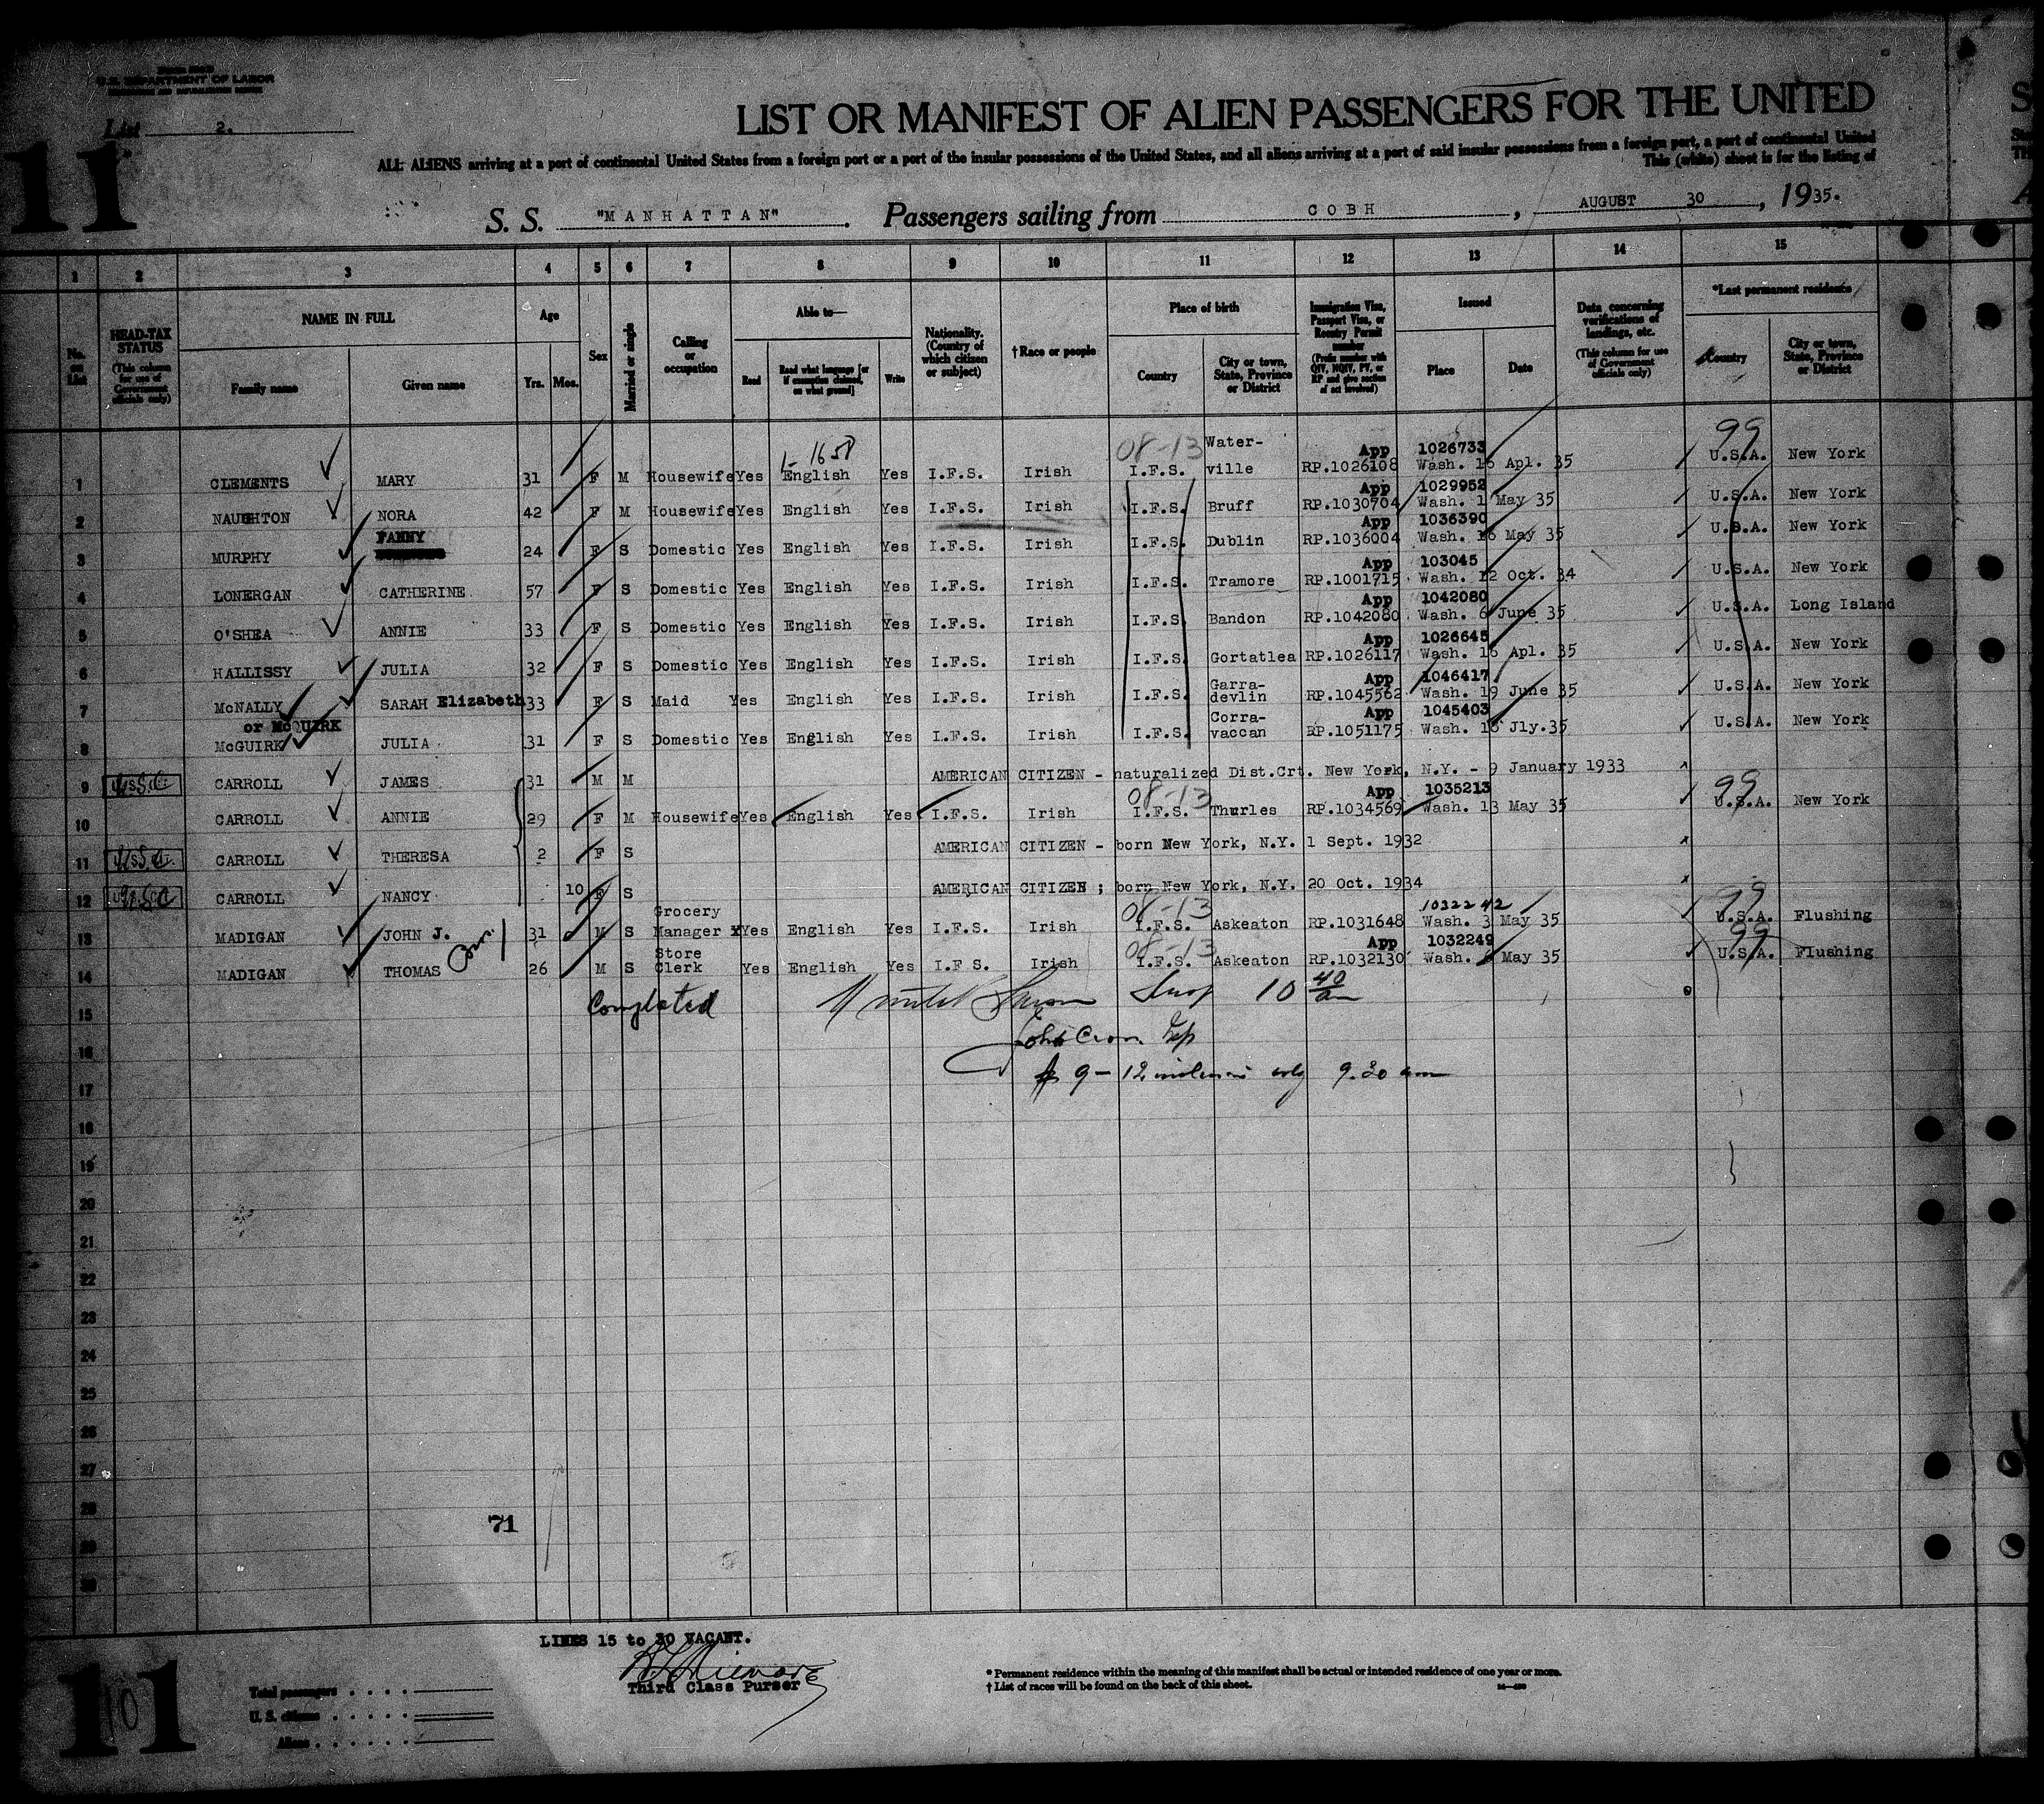 U.S. DEPARTMENT OF LABOR
List 2.
11
LIST OR MANIFEST OF ALIEN PASSENGERS FOR THE UNITED
ALL ALIENS arriving at a port of continental United States from a foreign port or a port of the insular possessions of the United States, and all aliens arriving at a port of said insular possessions from a foreign port, a port of continental United
This (white) sheet is for the listing of
S. S. "MANHATTAN". Passengers sailing from COBH, AUGUST 30, 1935.
1 2 3 4 5 6 7 8 9 10 11 12 13 14 15
No. on List
HEAD-TAX STATUS (This column for use of Government officials only)
NAME IN FULL Family name Given name
Age Yrs. Mos.
Sex
Married or single
Calling or occupation
Able to— Read Read what language [or if exemption claimed, on what ground] Write
Nationality. (Country of which citizen or subject)
†Race or people
Place of birth Country City or town, State, Province or District
Immigration Visa, Passport Visa, or Reentry Permit number (Prefix number with QIV, NQIV, PV, or RP and give section of act involved)
Issued Place Date
Data concerning verifications of landings, etc. (This column for use of Government officials only)
*Last permanent residence Country City or town, State, Province or District
1 CLEMENTS MARY 31 F M Housewife Yes 1-1658 English Yes I.F.S. Irish 08-13 I.F.S. Water-ville App RP.1026108 1026733 Wash. 16 Apl. 35 99 U.S.A. New York
2 NAUGHTON NORA 42 F M Housewife Yes English Yes I.F.S. Irish I.F.S. Bruff App RP.1030704 1029952 Wash. 1 May 35 U.S.A. New York
3 MURPHY FANNY 24 F S Domestic Yes English Yes I.F.S. Irish I.F.S. Dublin App RP.1036004 1036390 Wash. 16 May 35 U.S.A. New York
4 LONERGAN CATHERINE 57 F S Domestic Yes English Yes I.F.S. Irish I.F.S. Tramore App RP.1001715 103045 Wash. 12 Oct. 34 U.S.A. New York
5 O'SHEA ANNIE 33 F S Domestic Yes English Yes I.F.S. Irish I.F.S. Bandon App RP.1042080 1042080 Wash. 6 June 35 U.S.A. Long Island
6 HALLISSY JULIA 32 F S Domestic Yes English Yes I.F.S. Irish I.F.S. Gortatlea App RP.1026117 1026645 Wash. 16 Apl. 35 U.S.A. New York
7 McNALLY SARAH Elizabeth 33 F S Maid Yes English Yes I.F.S. Irish I.F.S. Garra-devlin App RP.1045562 1046417 Wash. 19 June 35 U.S.A. New York
or McQUIRK
8 McGUIRK JULIA 31 F S Domestic Yes English Yes I.F.S. Irish I.F.S. Corra-vaccan App RP.1051175 1045403 Wash. 16 Jly.35 U.S.A. New York
9 CARROLL JAMES 31 M M AMERICAN CITIZEN - naturalized Dist.Crt. New York, N.Y. - 9 January 1933
10 CARROLL ANNIE 29 F M Housewife Yes English Yes I.F.S. Irish 08-13 I.F.S. Thurles App RP.1034569 1035213 Wash. 13 May 35 99 U.S.A. New York
11 CARROLL THERESA 2 F S AMERICAN CITIZEN - born New York, N.Y. 1 Sept. 1932
12 CARROLL NANCY 10 F S AMERICAN CITIZEN ; born New York, N.Y. 20 Oct. 1934
13 MADIGAN JOHN J. 31 M S Grocery Manager Yes English Yes I.F.S. Irish 08-13 I.F.S. Askeaton RP.1031648 1032242 Wash. 3 May 35 99 U.S.A. Flushing
14 MADIGAN THOMAS 26 M S Store Clerk Yes English Yes I.F.S. Irish 08-13 I.F.S. Askeaton App RP.1032130 1032249 Wash. May 35 99 U.S.A. Flushing
15 Completed Insp 10 40 am
16 John
17 9-12 only 9.30 am
18
19
20
21
22
23
24
25
26
27
28
29
30
71
LINES 15 to 30 VACANT.
Third Class Purser
* Permanent residence within the meaning of this manifest shall be actual or intended residence of one year or more.
† List of races will be found on the back of this sheet.
Total passengers
U. S. citizens
Aliens
11